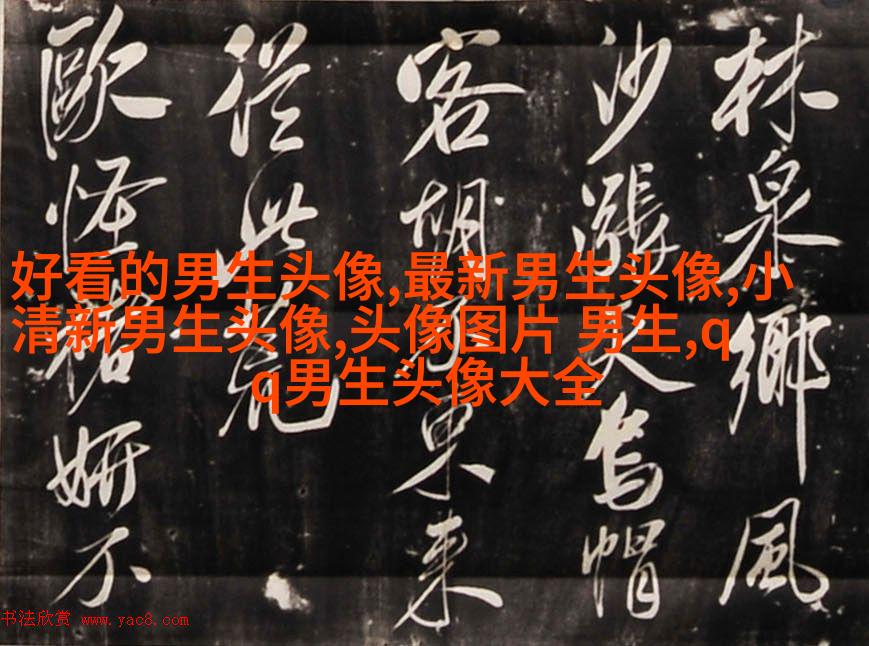 好看的男生头像,最新男生头像,小
清新男生头像,头像图片 男生,q
q男生头像大全
林泉鄉風
沙漲烏帽
客胡果来
從此
歐怪妍不
书法欣赏 www.yac8.com